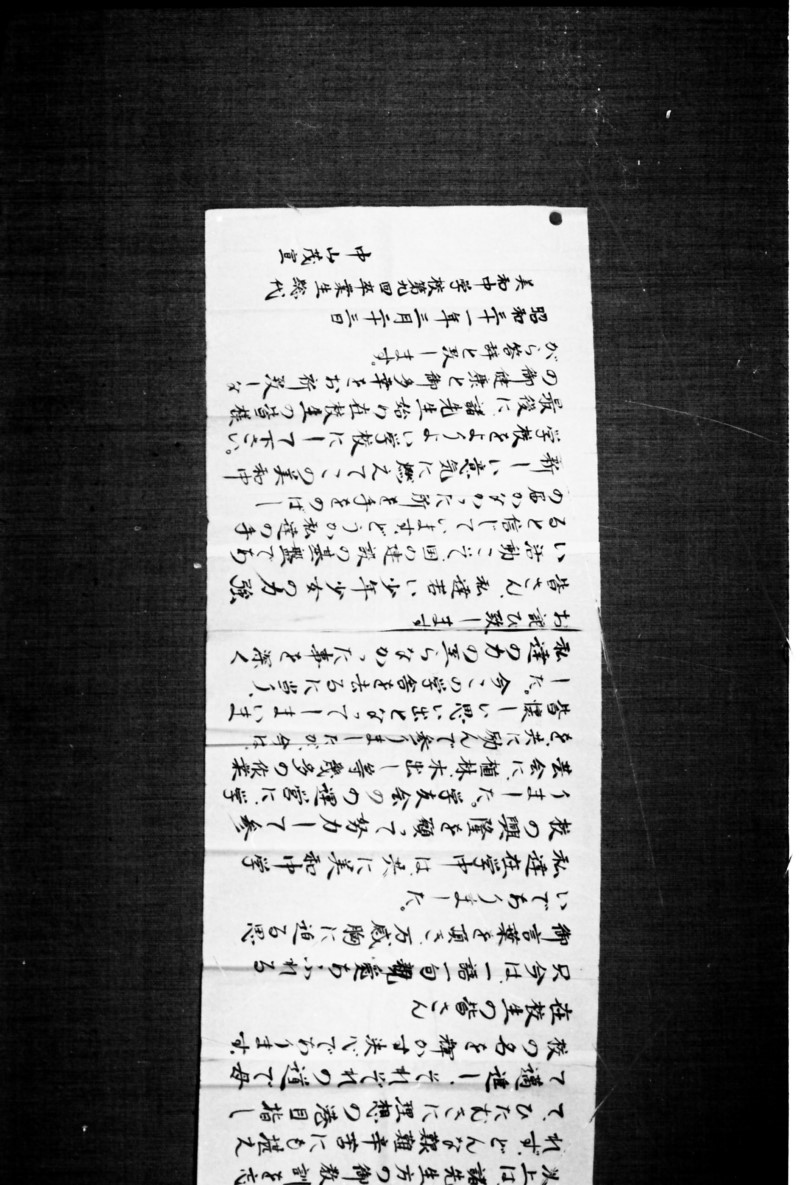 以上は、諸先生方の御教訓を忘
れず、どんな艱難辛苦にも堪え
て、ひたむきに理想の港目指し
て邁進し、それぞれの道で母
校の名を輝かす決心であります。
在校生の皆さん
只今は、一語一句親愛あふれる
御言葉を頂き、万感胸に迫る思
いでありました。
私達在学中は、共に美和中学
校の興隆を願って、努力して参
りました。学友会のの運営に、学
芸会に、植林、木出し等幾多の作業
を、共に励んで参りましたが、今は、
皆懐しい思い出となってしまいま
した。今この学舎を去るに当り、
私達の力の至らなかった事を深く
お詫び致します
皆さん、私達若い少年少女の力強
い活動こそ、国の建設の基盤であ
ると信じています。どうか私達の手
の届かなかった所を手をのばし
新しい意気に燃えてこの美和中
学校をよりよい学校にして下さい。
最後に、諸先生始め在校生の皆様
の御健康と御多幸をお祈致しな
がら答辞と致します。
昭和三十一年三月二十三日
美和中学校第九回卒業生総代
中山茂宣